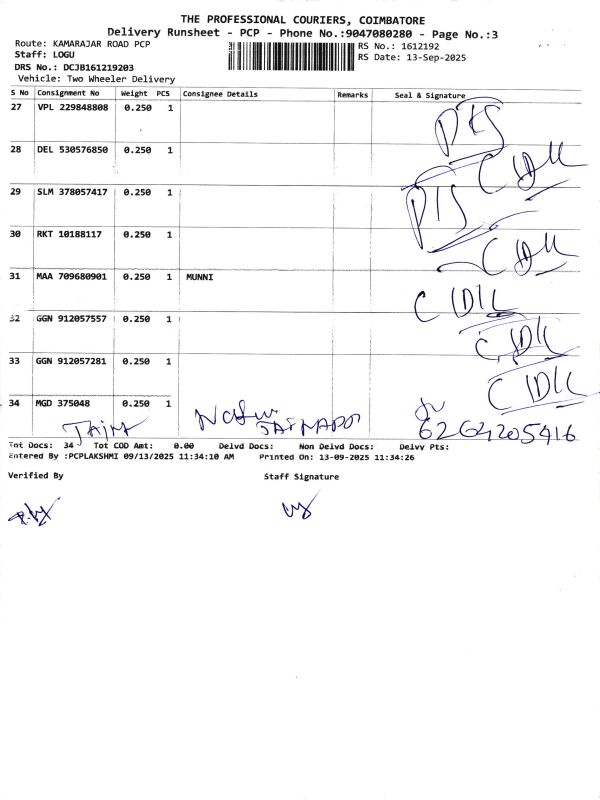 THE PROFESSIONAL COURIERS, COIMBATORE
Delivery Runsheet - PCP - Phone No.:9047080280 - Page No.:3
Route: KAMARAJAR ROAD PCP
RS No.: 1612192
Staff: LOGU
RS Date: 13-Sep-2025
DRS No.: DCJB161219203
Vehicle: Two Wheeler Delivery
S No Consignment No Weight PCS Consignee Details Remarks Seal & Signature
27 VPL 229848808 0.250 1
28 DEL 530576850 0.250 1
29 SLM 378057417 0.250 1
30 RKT 10188117 0.250 1
31 MAA 709680901 0.250 1 MUNNI
32 GGN 912057557 0.250 1
33 GGN 912057281 0.250 1
34 MGD 375048 0.250 1
Tot Docs: 34 Tot COD Amt: 0.00 Delvd Docs: Non Delvd Docs: Delvy Pts:
Entered By :PCPLAKSHMI 09/13/2025 11:34:10 AM Printed On: 13-09-2025 11:34:26
Verified By Staff Signature